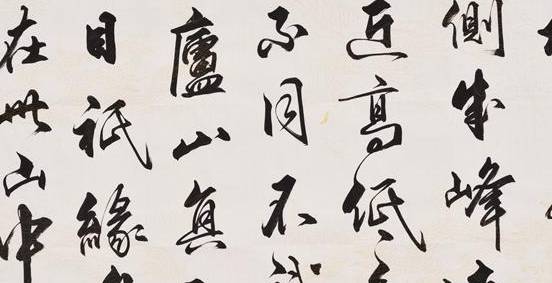 側成峰
近高低
不同不
廬山真
目祇緣
在此山中